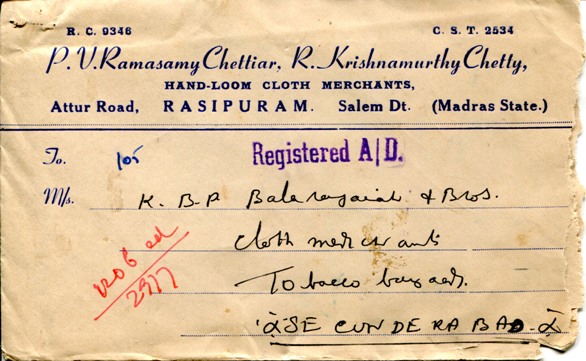 R. C. 9346 C. S. T. 2534
P. V. Ramasamy Chettiar, R. Krishnamurthy Chetty,
HAND-LOOM CLOTH MERCHANTS,
Attur Road, RASIPURAM. Salem Dt. (Madras State.)
To. 105 Registered A/D.
M/s. K. B. P & Bros.
Cloth merchants
Tobacco bazaar.
SECUNDERABAD